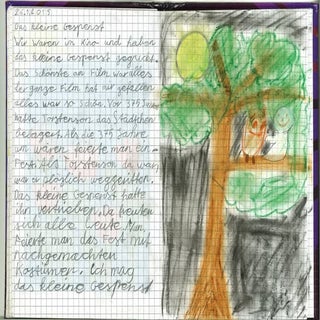 26.1.2015
Das kleine Gespenst
Wir waren in Kino und haben
das kleine Gespenst geguckt.
Das Schönste am Film war alles
der ganze Film hat mir gefallen
alles war so schön. Vor 375 Jahren
hatte Torstenson das Städtchen
belagert. Als die 375 Jahre
um waren feierte man ein
Fest. Als Torstenson da war,
war er plözlich weggeritten.
Das kleine Gespenst hatte
ihn vertrieben. Da freuten
sich alle Leute. Nun
feierte man das Fest mit
nachgemachten
Kostümen. Ich mag
das kleine Gespenst